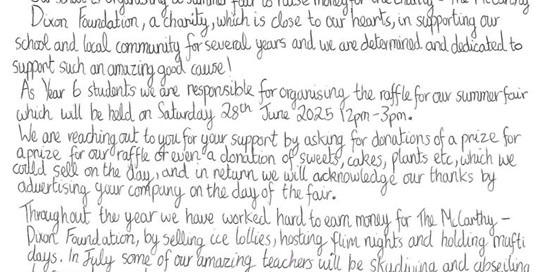 Our school is organising a summer fair to raise money for the charity - The McCarthy
Dixon Foundation, a charity, which is close to our hearts, in supporting our
school and local community for several years and we are determined and dedicated to
support such an amazing good cause!
As Year 6 students we are responsible for organising the raffle for our summer fair
which will be held on Saturday 28th June 2025 12pm-3pm.
We are reaching out to you for your support by asking for donations of a prize for
a prize for our raffle or even a donation of sweets, cakes, plants etc, which we
could sell on the day, and in return we will acknowledge our thanks by
advertising your company on the day of the fair.
Throughout the year we have worked hard to earn money for The McCarthy -
Dixon Foundation, by selling ice lollies, hosting flim nights and holding mufti
days. In July some of our amazing teachers will be skydiving and abseiling